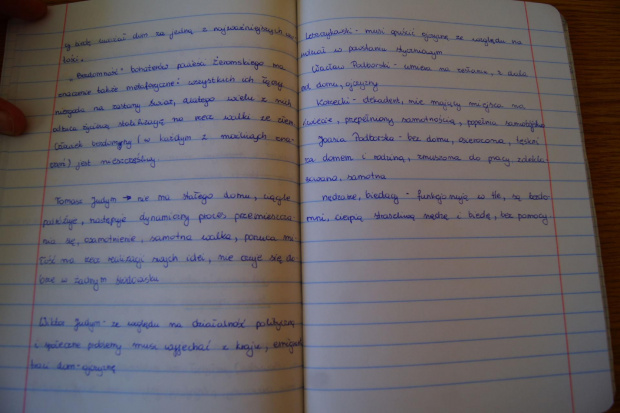 uważać dom za jedną z najważniejszych war-
tości.
„Bezdomność" bohaterów powieści Żeromskiego ma
znaczenie także metaforyczne: wszystkich ich łączy
niezgoda na zastany świat, dlatego wielu z nich
odrzuca życiową stabilizację na rzecz walki ze złem
Człowiek bezdomny (w każdym z możliwych zna-
czeń) jest nieszczęśliwy.
Tomasz Judym → nie ma stałego domu, ciągle
podróżuje, następuje dynamiczny proces przemieszcza-
nia się, osamotnienie, samotna walka, porzuca mi-
łość na rzecz realizacji swych idei, nie czuje się do-
brze w żadnym środowisku
Wiktor Judym - ze względu na działalność polityczną
i społeczne problemy musi wyjechać z kraju,
traci dom - ojczyznę
Leszczykowski - musi opuścić ojczyznę ze względu na
udział w powstaniu styczniowym
Wacław Podborski - umiera na zesłaniu, z dala
od domu, ojczyzny
Korzecki - dekadent, nie mający miejsca na
świecie, przepełniony samotnością, popełnia samobójstwo
Joasia Podborska - bez domu, osierocona, tęskni
za domem i rodziną, zmuszona do pracy, zdekla-
sowana, samotna
nędzarze, biedacy - funkcjonują w tle, są bezdo-
mni, cierpią straszliwą nędzę i biedę, bez pomocy